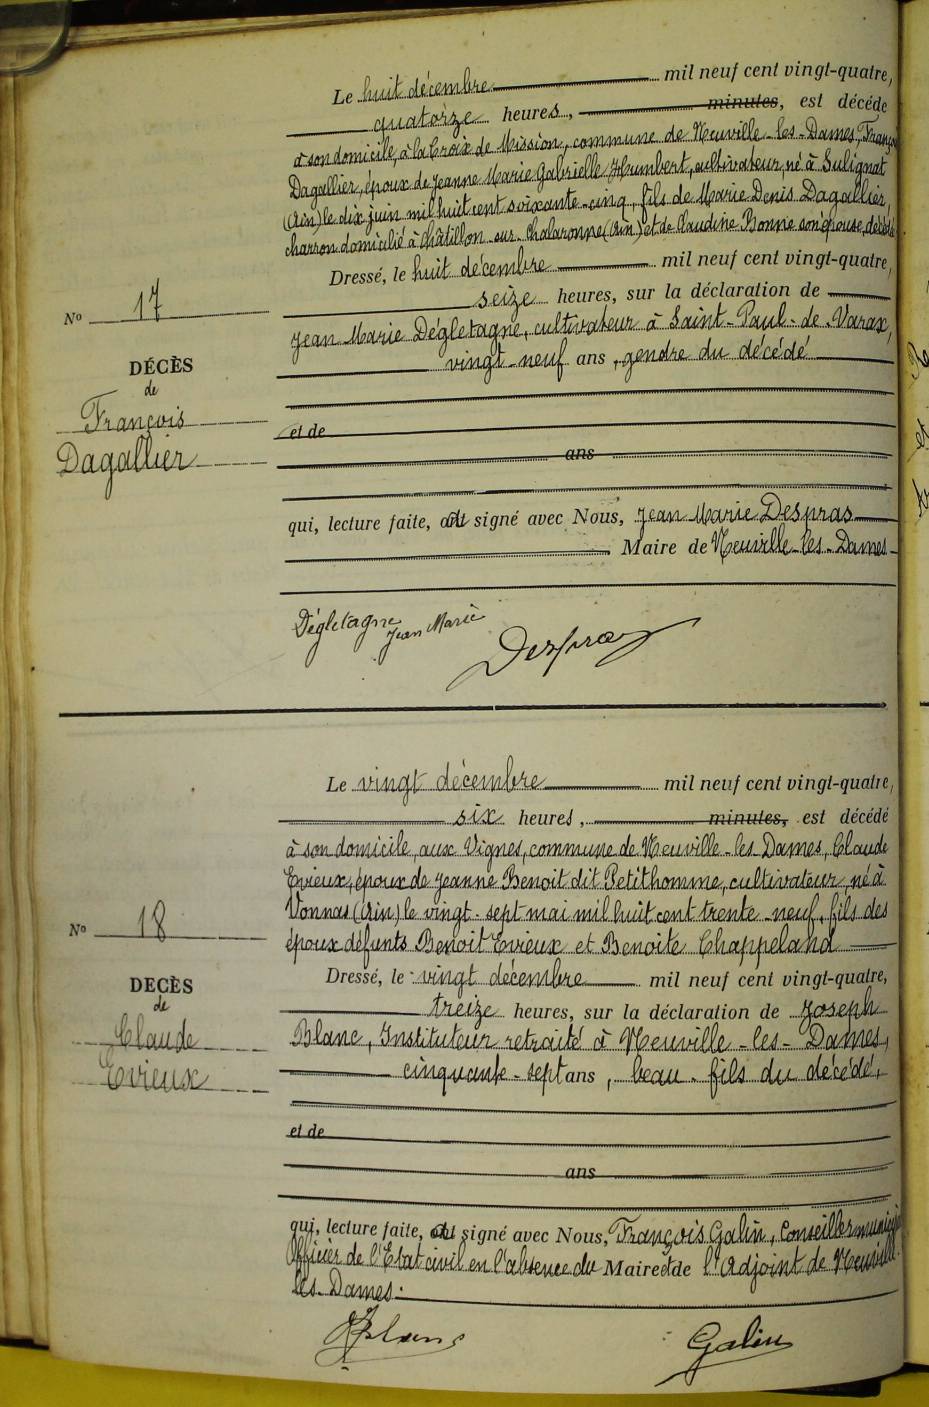 Le huit décembre mil neuf cent vingt-quatre,
quatorze heures, minutes, est décédé
à son domicile, à la Croix de Mission, commune de Neuville-les-Dames, Franço
Dagallier, époux de Jeanne Marie Gabrielle Humbert, cultivateur, né à Sulignat
(Ain) le dix juin mil huit cent soixante-cinq, fils de Marie Denis Dagallier,
charron domicilié à Châtillon-sur-Chalaronne (Ain) et de Claudine Bonne son épouse, décédé
Dressé, le huit décembre mil neuf cent vingt-quatre,
seize heures, sur la déclaration de
Jean Marie Dégletagne, cultivateur à Saint-Paul-de-Varax,
vingt-neuf ans, gendre du décédé
et de
ans
qui, lecture faite, a signé avec Nous, Jean Marie Despras
Maire de Neuville-les-Dames
N° 17
DÉCÈS
de
François
Dagallier
Dégletagne Jean Marie
Despras
Le vingt décembre mil neuf cent vingt-quatre,
six heures, minutes, est décédé
à son domicile, aux Vignes, commune de Neuville-les-Dames, Claude
Evieux, époux de Jeanne Benoit dit Petithomme, cultivateur, né à
Vonnas (Ain) le vingt-sept mai mil huit cent trente-neuf, fils des
époux défunts Benoit Evieux et Benoite Chappeland
Dressé, le vingt décembre mil neuf cent vingt-quatre,
treize heures, sur la déclaration de Joseph
Blanc, Instituteur retraité à Neuville-les-Dames,
cinquante-sept ans, beau-fils du décédé,
et de
ans
qui, lecture faite, a signé avec Nous, François Galin, Conseiller municip
Officier de l'Etat civil en l'absence du Maire et de l'Adjoint de Neuville
les-Dames.
N° 18
DECÈS
de
Claude
Evieux
Blanc
Galin